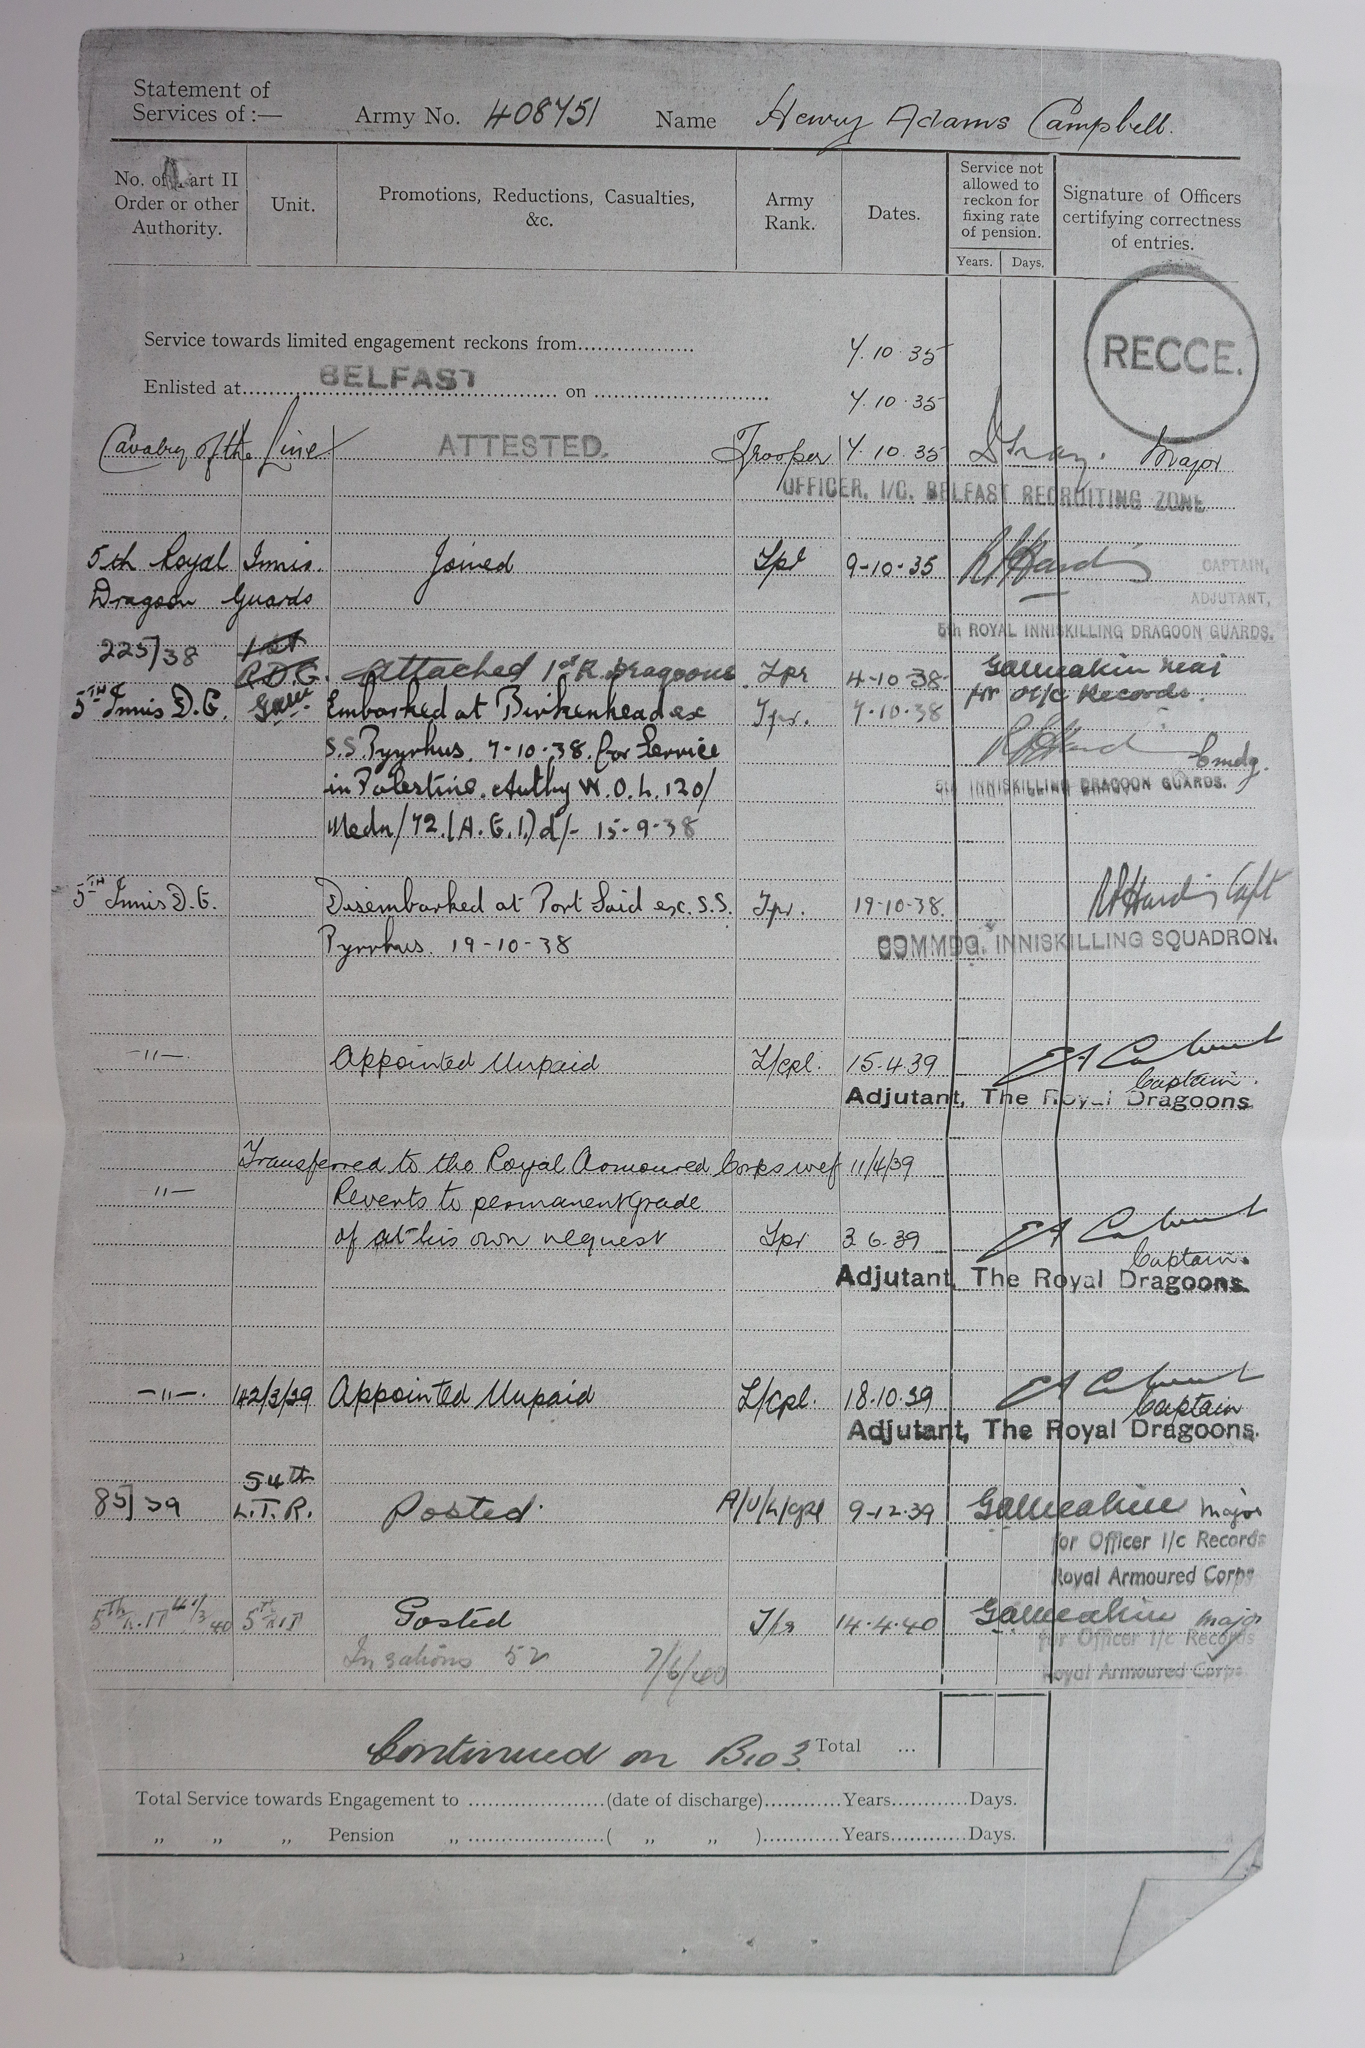 Statement of
Services of :— Army No. 408751 Name Henry Adams Campbell.
No. of Part II Order or other Authority. Unit. Promotions, Reductions, Casualties, &c. Army Rank. Dates. Service not allowed to reckon for fixing rate of pension. Signature of Officers certifying correctness of entries.
Years. Days.
RECCE.
Service towards limited engagement reckons from................. 7.10.35
Enlisted at BELFAST on 7.10.35
Cavalry of the Line ATTESTED. Trooper 7.10.35 Major
OFFICER, I/C. BELFAST RECRUITING ZONE
5th Royal Innis. Joined Tpr 9-10-35 CAPTAIN,
Dragoon Guards ADJUTANT,
5th ROYAL INNISKILLING DRAGOON GUARDS.
225/38 1st
R.D.G. Attached 1st R. Dragoons. Tpr 4-10-38
for O i/c Records.
5TH Innis D.G. Embarked at Birkenhead ex Tpr. 7-10-38
S.S Pyyrhus. 7-10-38. for Service Cmdg.
in Palestine. Authy W.O.L. 120/ 5th INNISKILLING DRAGOON GUARDS.
Medn/72.(A.G.1.) d/- 15-9-38
5TH Innis D.G. Disembarked at Port Said ex. S.S. Tpr. 19-10-38. Capt
Pyrrhus. 19-10-38 COMMDG. INNISKILLING SQUADRON.
—"— Appointed Unpaid L/cpl. 15.4.39
Captain.
Adjutant, The Royal Dragoons
Transferred to the Royal Armoured Corps wef 11/4/39
—"— Reverts to permanent grade
of at his own request Tpr 3 6.39
Captain.
Adjutant, The Royal Dragoons.
—"—. 42/3/39 Appointed Unpaid L/cpl. 18.10.39
Captain
Adjutant, The Royal Dragoons.
85/39 54th
L.T.R. Posted. A/U/L/cpl 9-12-39 Major
for Officer I/c Records
Royal Armoured Corps
5th Posted Tpr 14.4.40 Major
for Officer I/c Records
52 7/6/40 Royal Armoured Corps
Continued on B103 Total ...
Total Service towards Engagement to ......................(date of discharge)............Years............Days.
„ „ „ Pension „ ......................( „ „ )............Years............Days.